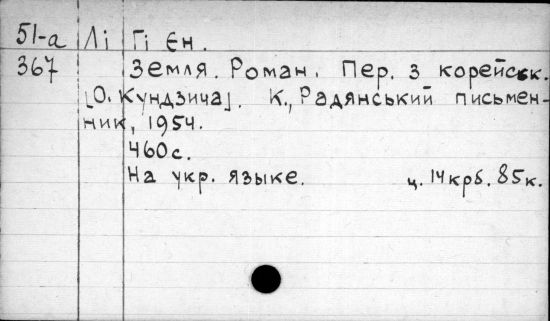 51-а Лі Гі Єн.
367 Земля. Роман. Пер. з корейськ.
[О. Кундзича]. К., Радянський письмен-
ник, 1954.
460 с.
На укр. языке. ц. 14 крб. 85 к.